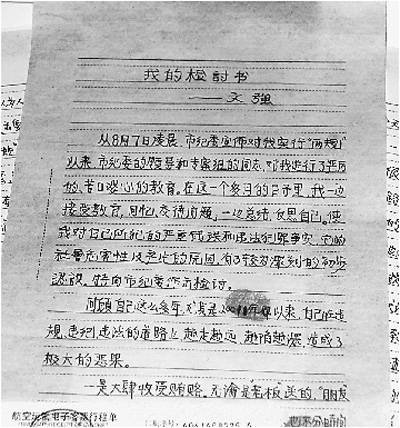 我的检讨书
——文强
从8月7日凌晨,市纪委宣布对我实行“两规”
以来,市纪委的领导和专案组的同志,对我进行了严厉
的、苦口婆心的教育,在这一个多月的日子里,我一边
接受教育,回忆交待问题,一边总结、反思自己。使
我对自己所犯的严重错误和违法犯罪事实,它的
严重危害性以及产生的原因,有了较为深刻的初步
认识,特向市纪委作示检讨。
回顾自己这么多年,尤其是 以来,自己在违
规、违纪、违法的道路上越走越远,越陷越深,造成了
极大的恶果。
一是大肆收受贿赂。无论是老板送的,“朋友
航空运输电子客票行程单